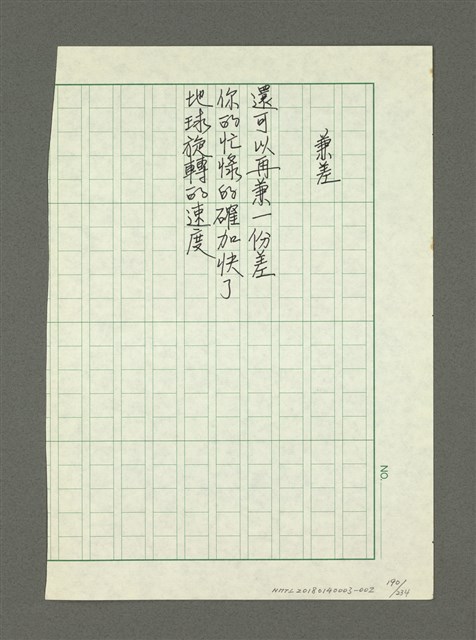 兼差
還可以再兼一份差
你的忙碌的確加快了
地球旋轉的速度
NO.
190/234
NMTL20180140003-002